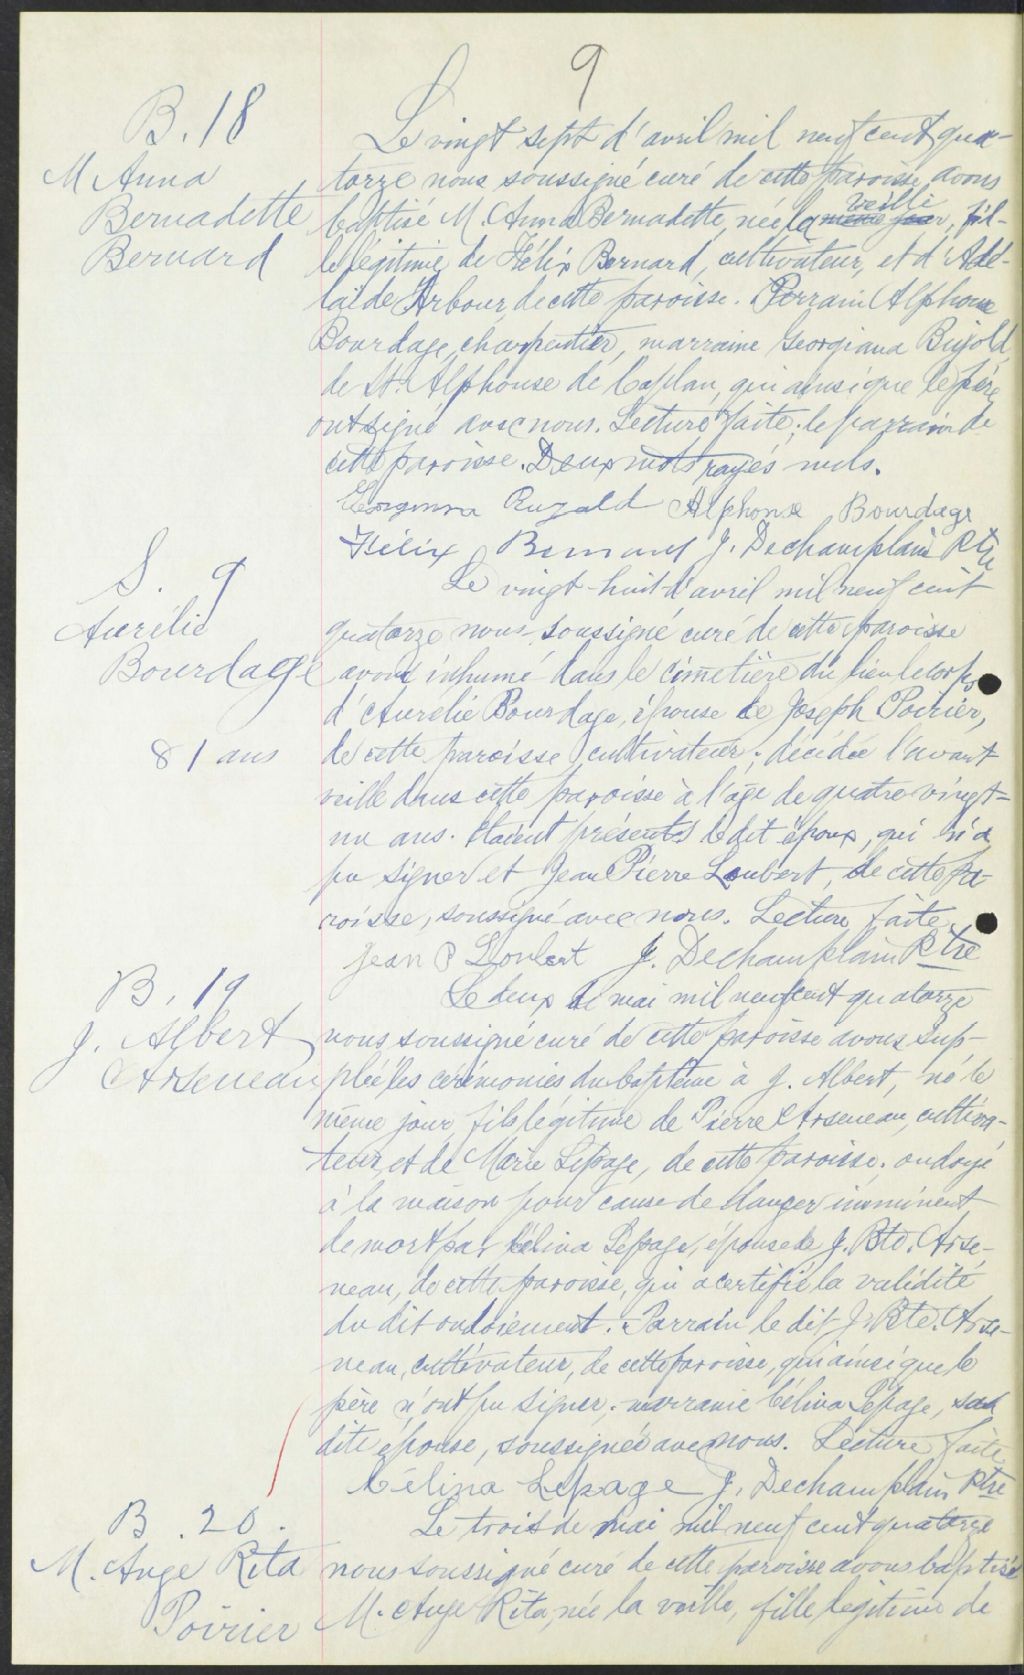 9
B. 18
M Anna
Bernadette
Bernard
Le vingt sept d'avril mil neuf cent qua-
torze nous soussigné curé de cette paroisse avons
baptisé M. Anna Bernadette, née la veille même jour, fil-
le légitime de Félix Bernard, cultivateur, et d'Adé-
laïde Arbour, de cette paroisse. Parrain Alphonse
Bourdage, charpentier, marraine Georgiana Bujold,
de St. Alphonse de Caplan, qui ainsi que le père
ont signé avec nous. Lecture faite; le parrain de
cette paroisse. Deux mots rayés nuls.
Alphonse Bourdage
Félix Bernard J. Dechamplain Ptre
S. 9
Aurélie
Bourdage
81 ans
Le vingt-huit d'avril mil neuf cent
quatorze nous soussigné curé de cette paroisse
avons inhumé dans le cimetière du lieu le corps
d'Aurélie Bourdage, épouse de Joseph Poirier,
de cette paroisse, cultivateur; décédée l'avant
veille dans cette paroisse à l'âge de quatre-vingt-
un ans. Etaient présents le dit époux, qui n'a
pu signer et Jean Pierre Loubert, de cette pa-
roisse, soussigné avec nous. Lecture faite.
Jean P Loubert J. Dechamplain Ptre
B. 19
J. Albert
Arseneau
Le deux de mai mil neuf cent quatorze
nous soussigné curé de cette paroisse avons sup-
pléé les cérémonies du baptême à J. Albert, né le
même jour, fils légitime de Pierre Arseneau, cultiva-
teur, et de Marie Lepage, de cette paroisse. ondoyé
à la maison pour cause de danger imminent
de mort par Célina Lepage, épouse de J. Bte. Arse-
neau, de cette paroisse, qui a certifié la validité
du dit ondoiement. Parrain le dit J. Bte. Arse-
neau, cultivateur, de cette paroisse, qui ainsi que le
père n'ont pu signer; marraine Célina Lepage, sa
dite épouse, soussignée avec nous. Lecture faite
Célina Lepage J. Dechamplain Ptre
B. 20.
M. Ange Rita
Poirier
Le trois de mai mil neuf cent quatorze
nous soussigné curé de cette paroisse avons baptisé
M. Ange Rita, née la veille, fille légitime de